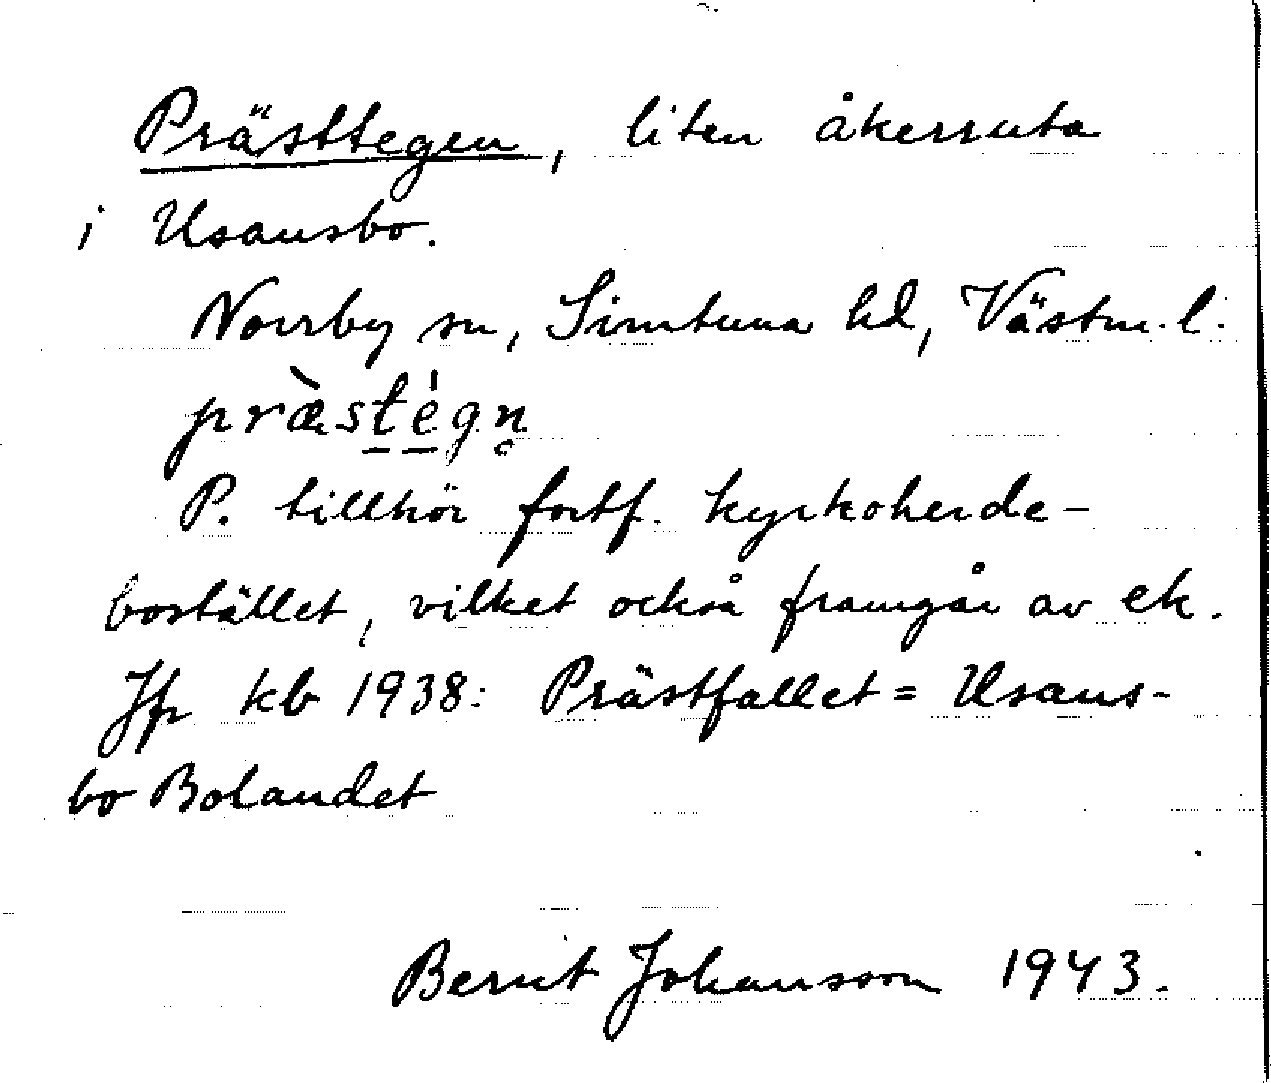 Prästtegen, liten åkerruta
i Usansbo.
Norrby sn, Simtuna hd, Västm. l.
præ̀sté̠gn̥
P. tillhör fortf. kyrkoherde-
bostället, vilket också framgår av ek.
Jfr kb 1938: Prästfallet = Usans-
bo Bolandet
Berit Johansson 1943.